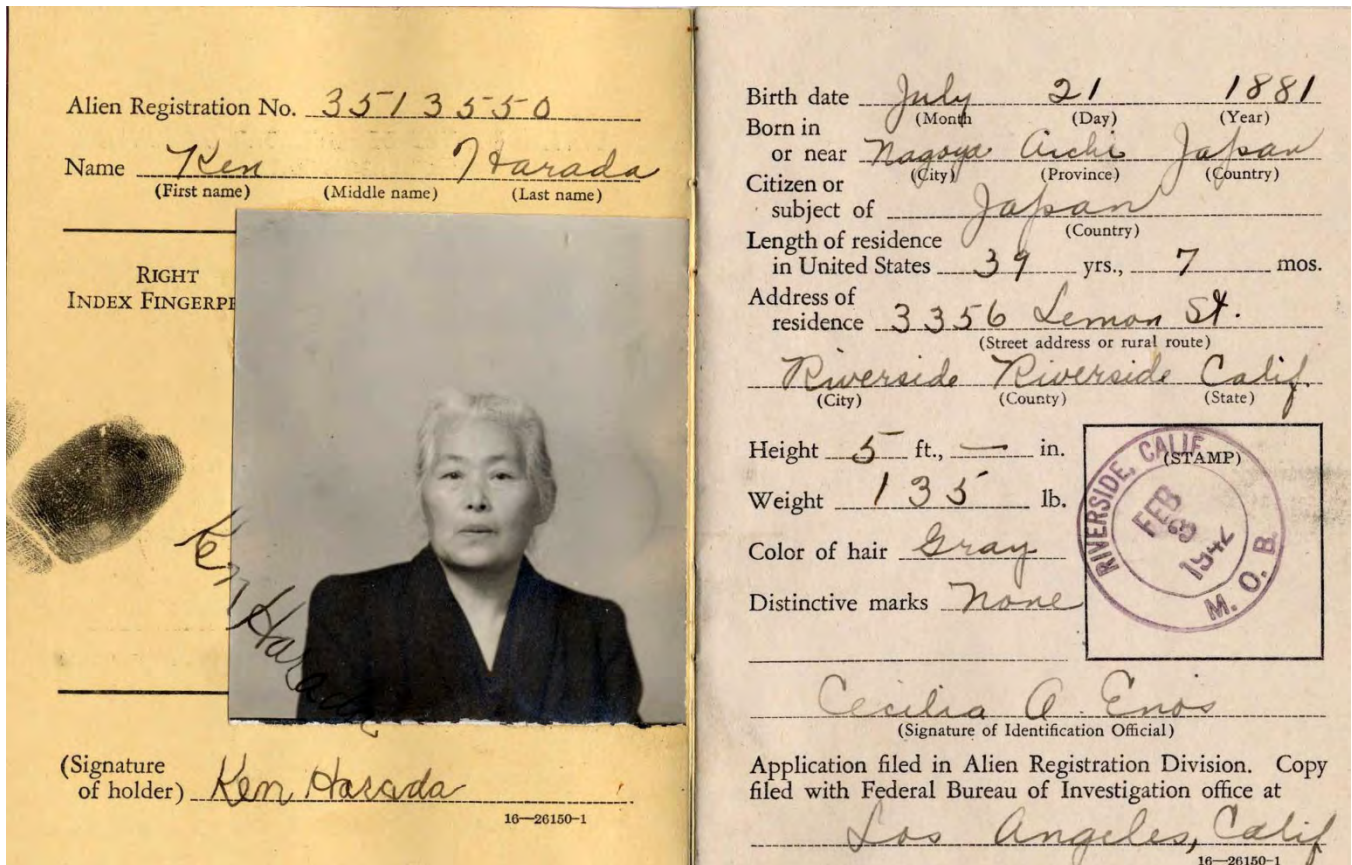 Alien Registration No. 3513550
Name Ken Harada
(First name) (Middle name) (Last name)
RIGHT
INDEX FINGERPR
Ken Harada
(Signature
of holder) Ken Harada
16—26150-1
Birth date July 21 1881
(Month (Day) (Year)
Born in
or near Nagoya Aichi Japan
(City) (Province) (Country)
Citizen or
subject of Japan
(Country)
Length of residence
in United States 39 yrs., 7 mos.
Address of
residence 3356 Lemon St.
(Street address or rural route)
Riverside Riverside Calif.
(City) (County) (State)
Height 5 ft., — in.
Weight 135 lb.
Color of hair Gray
Distinctive marks None
(STAMP)
RIVERSIDE, CALIF.
FEB
3
1942
M. O. B.
Cecilia A. Enos
(Signature of Identification Official)
Application filed in Alien Registration Division. Copy
filed with Federal Bureau of Investigation office at
Los Angeles, Calif
16—26150-1